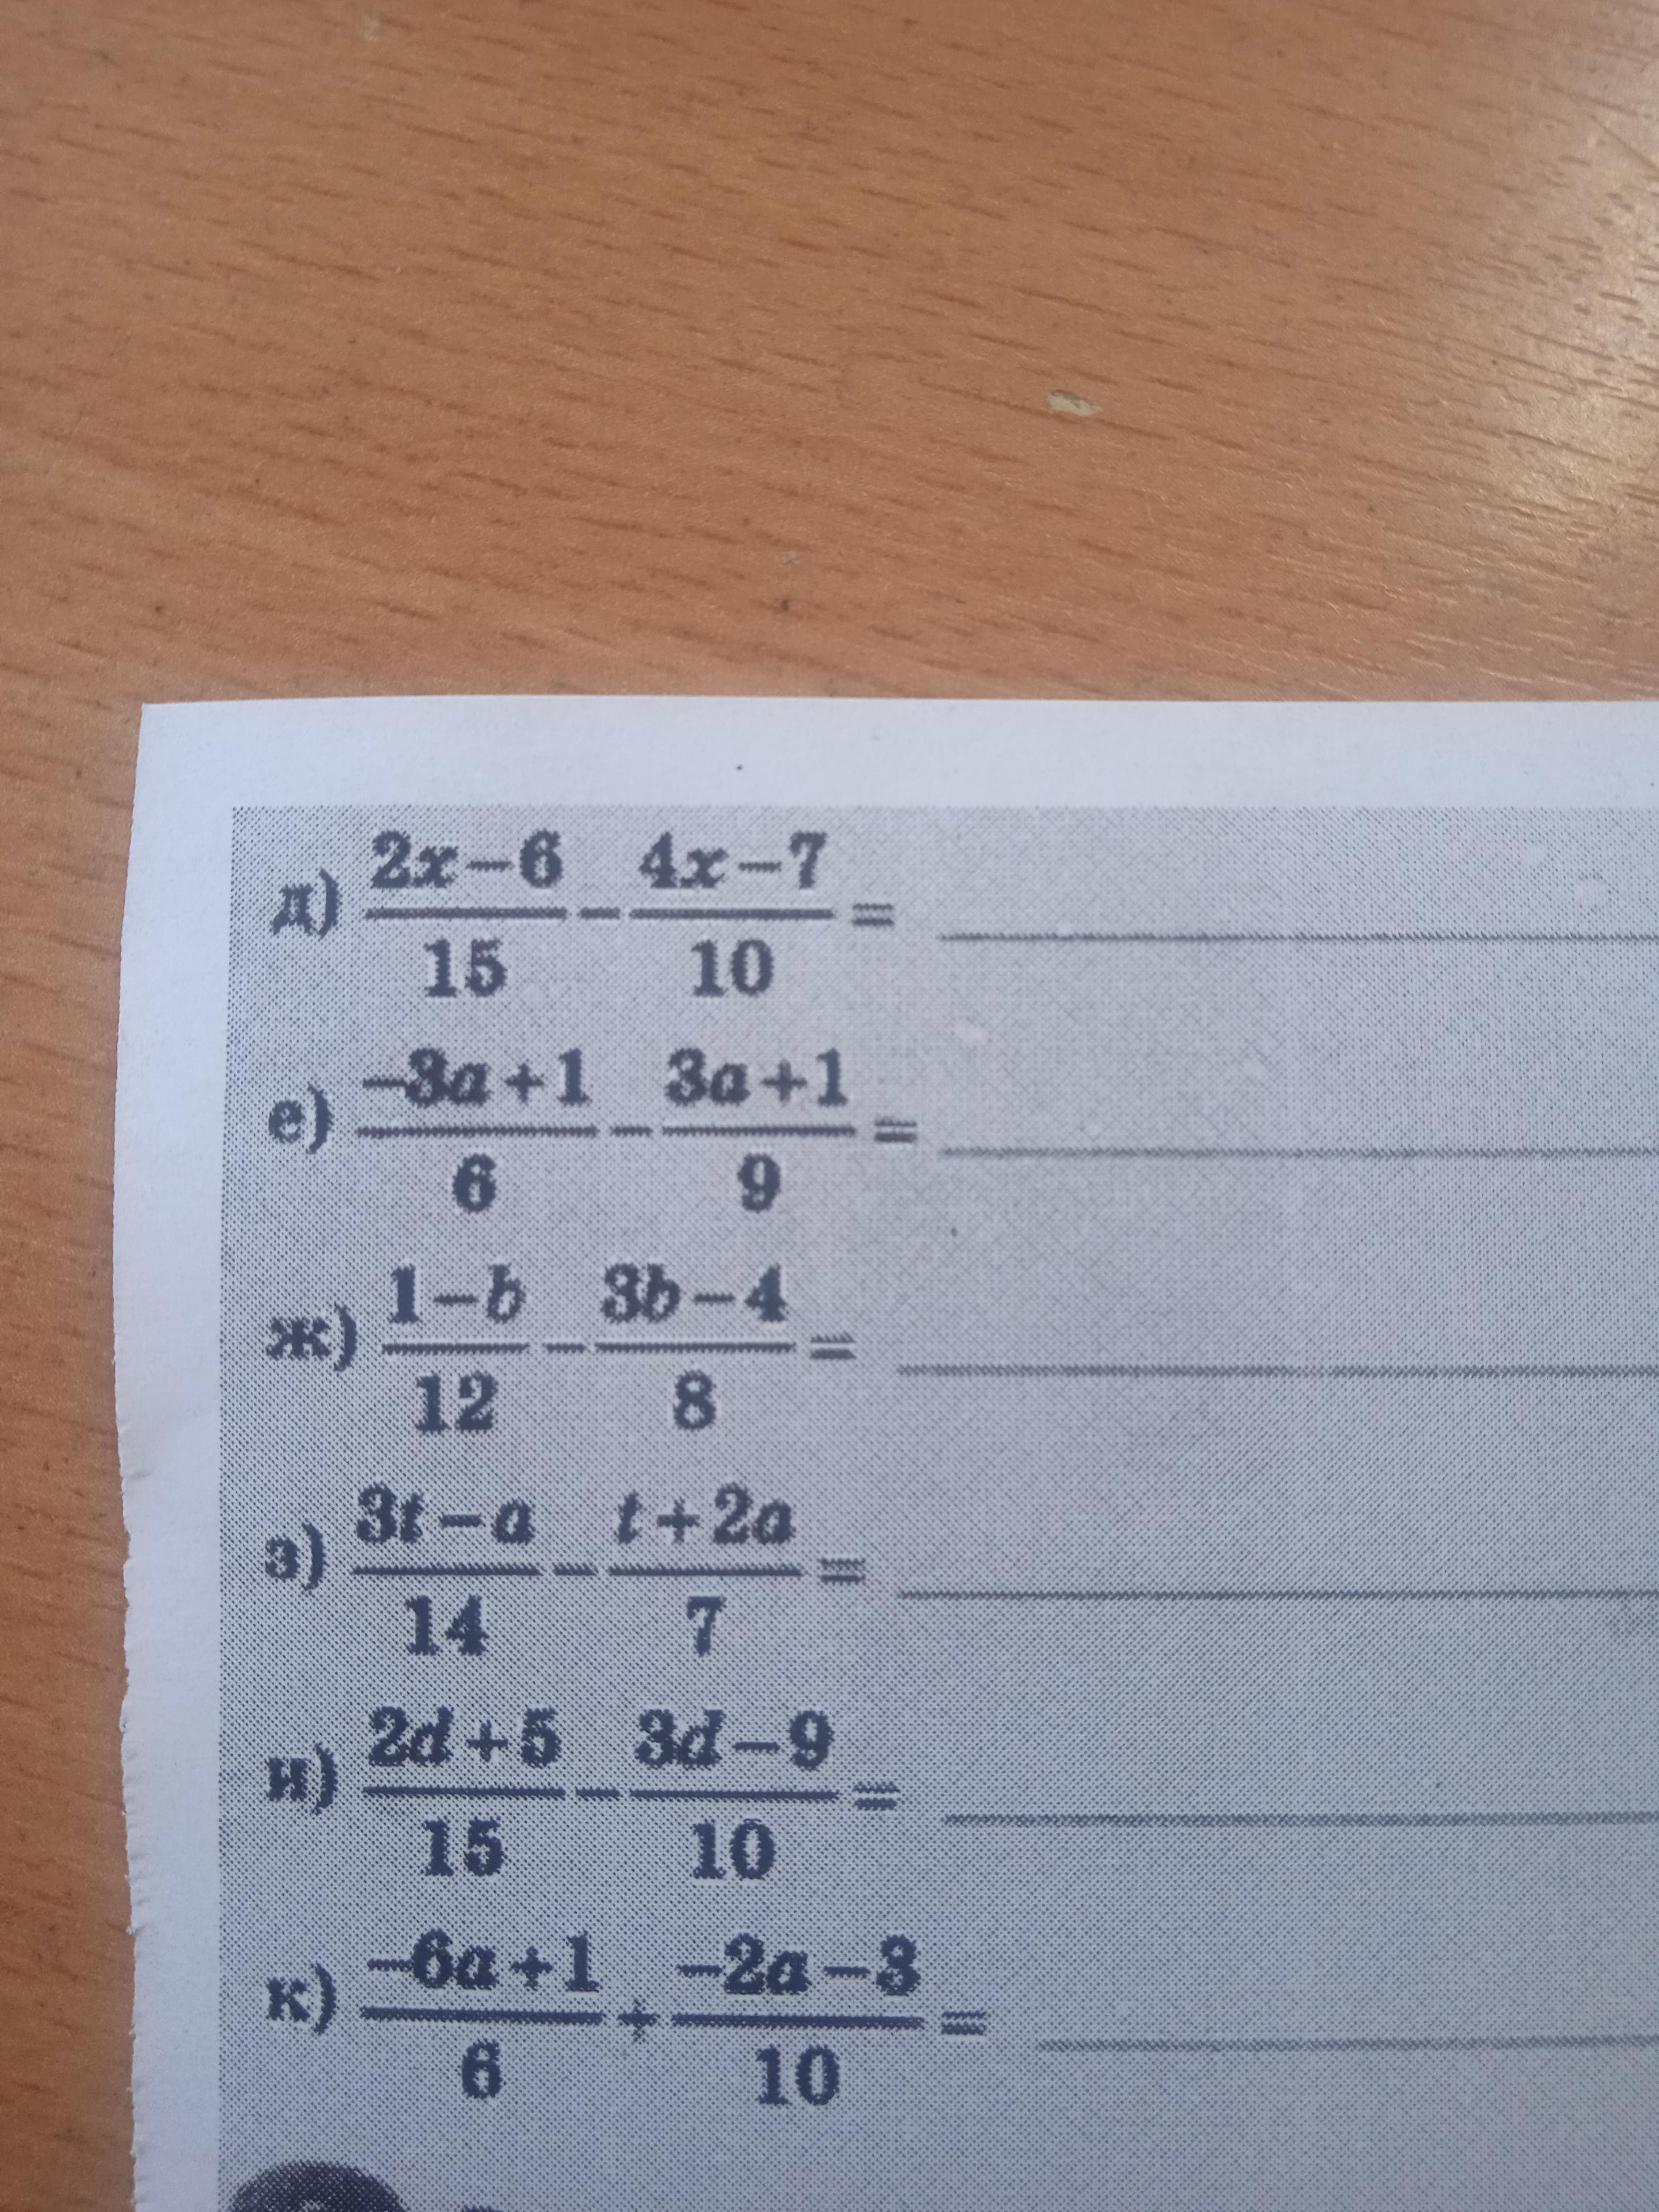 д) (2x−6)/15 − (4x−7)/10 =
е) (−3a+1)/6 − (3a+1)/9 =
ж) (1−b)/12 − (3b−4)/8 =
з) (3t−a)/14 − (t+2a)/7 =
и) (2d+5)/15 − (3d−9)/10 =
к) (−6a+1)/6 + (−2a−3)/10 =